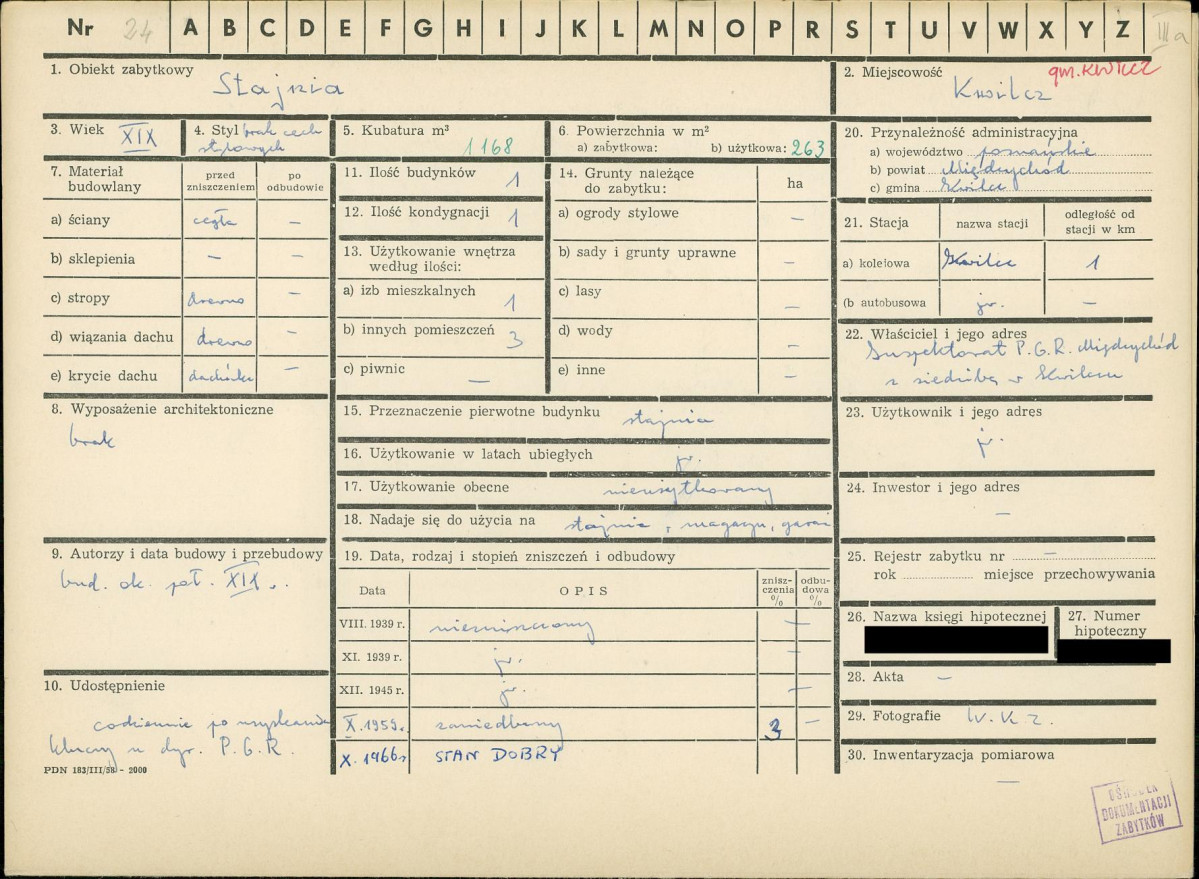 Nr 24 A B C D E F G H I J K L M N O P R S T U V W X Y Z IIIa
1. Obiekt zabytkowy
Stajnia
2. Miejscowość
gm. KWILCZ
Kwilcz
3. Wiek XIX
4. Styl brak cech
stylowych
5. Kubatura m³
1168
6. Powierzchnia w m²
a) zabytkowa: b) użytkowa: 263
7. Materiał
budowlany
przed
zniszczeniem
po
odbudowie
a) ściany cegła –
b) sklepienia – –
c) stropy drewno –
d) wiązania dachu drewno –
e) krycie dachu dachówka –
8. Wyposażenie architektoniczne
brak
9. Autorzy i data budowy i przebudowy
bud. ok. poł. XIX w.
10. Udostępnienie
codziennie po uzyskaniu
kluczy u dyr. P.G.R.
PDN 183/III/58 - 2000
11. Ilość budynków 1
12. Ilość kondygnacji 1
13. Użytkowanie wnętrza
według ilości:
a) izb mieszkalnych 1
b) innych pomieszczeń 3
c) piwnic –
14. Grunty należące
do zabytku:
ha
a) ogrody stylowe –
b) sady i grunty uprawne –
c) lasy –
d) wody –
e) inne –
15. Przeznaczenie pierwotne budynku stajnia
16. Użytkowanie w latach ubiegłych jw.
17. Użytkowanie obecne nieużytkowany
18. Nadaje się do użycia na stajnia, magazyn, garaż
19. Data, rodzaj i stopień zniszczeń i odbudowy
Data
OPIS
znisz-
czenia
%
odbu-
dowa
%
VIII. 1939 r. niezniszczony –
XI. 1939 r. jw. –
XII. 1945 r. jw. –
X.1959r. zaniedbany 3 –
X. 1966r STAN DOBRY
20. Przynależność administracyjna
a) województwo poznańskie
b) powiat Międzychód
c) gmina Kwilcz
21. Stacja
nazwa stacji
odległość od
stacji w km
a) kolejowa Kwilcz 1
(b autobusowa jw. –
22. Właściciel i jego adres
Inspektorat P.G.R. Międzychód
z siedzibą w Kwilczu
23. Użytkownik i jego adres
jw.
24. Inwestor i jego adres
–
25. Rejestr zabytku nr –
rok miejsce przechowywania
26. Nazwa księgi hipotecznej
27. Numer
hipoteczny
28. Akta –
29. Fotografie W.K.Z.
30. Inwentaryzacja pomiarowa
–
OŚRODEK
DOKUMENTACJI
ZABYTKÓW